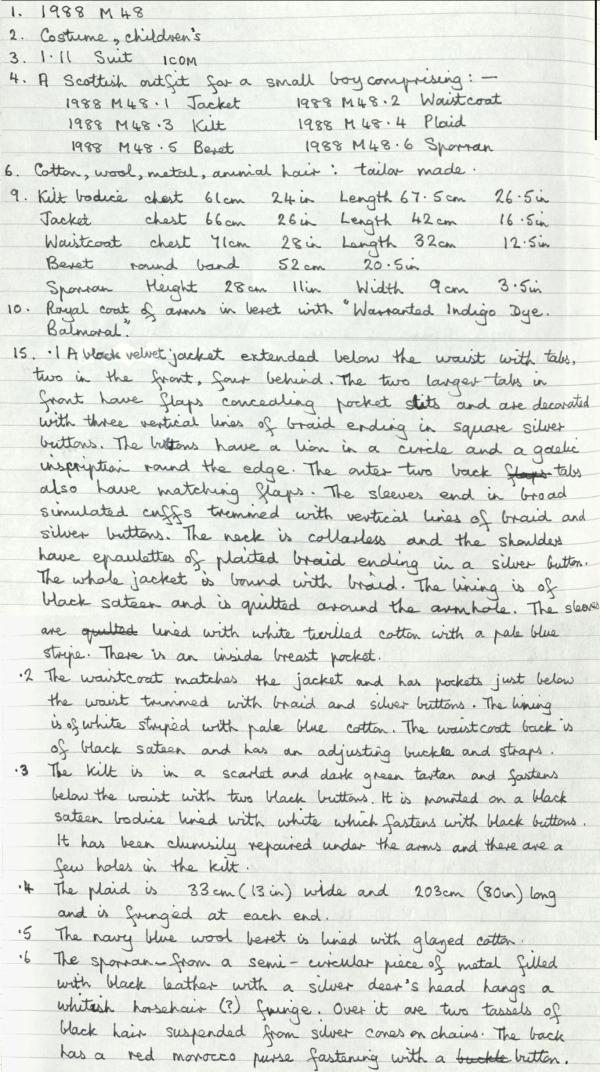 1. 1988 M 48
2. Costume, children's
3. 1.11 Suit ICOM
4. A Scottish outfit for a small boy comprising: —
1988 M48.1 Jacket 1988 M48.2 Waistcoat
1988 M48.3 Kilt 1988 M48.4 Plaid
1988 M48.5 Beret 1988 M48.6 Sporran
6. Cotton, wool, metal, animal hair: tailor made.
9. Kilt bodice chest 61cm 24in Length 67.5cm 26.5in
Jacket chest 66cm 26in Length 42cm 16.5in
Waistcoat chest 71cm 28in Length 32cm 12.5in
Beret round band 52cm 20.5in
Sporran Height 28cm 11in Width 9cm 3.5in
10. Royal coat of arms in beret with "Warranted Indigo Dye.
Balmoral."
15. .1 A black velvet jacket extended below the waist with tabs,
two in the front, four behind. The two larger tabs in
front have flaps concealing pocket slits and are decorated
with three vertical lines of braid ending in square silver
buttons. The buttons have a lion in a circle and a gaelic
inscription round the edge. The outer two back flaps tabs
also have matching flaps. The sleeves end in broad
simulated cuffs trimmed with vertical lines of braid and
silver buttons. The neck is collarless and the shoulders
have epaulettes of plaited braid ending in a silver button.
The whole jacket is bound with braid. The lining is of
black sateen and is quilted around the armhole. The sleeves
are quilted lined with white twilled cotton with a pale blue
stripe. There is an inside breast pocket.
.2 The waistcoat matches the jacket and has pockets just below
the waist trimmed with braid and silver buttons. The lining
is of white striped with pale blue cotton. The waistcoat back is
of black sateen and has an adjusting buckle and straps.
.3 The kilt is in a scarlet and dark green tartan and fastens
below the waist with two black buttons. It is mounted on a black
sateen bodice lined with white which fastens with black buttons.
It has been clumsily repaired under the arms and there are a
few holes in the kilt.
.4 The plaid is 33cm (13in) wide and 203cm (80in) long
and is fringed at each end.
.5 The navy blue wool beret is lined with glazed cotton.
.6 The sporran - from a semi-circular piece of metal filled
with black leather with a silver deer's head hangs a
whitish horsehair (?) fringe. Over it are two tassels of
black hair suspended from silver cones on chains. The back
has a red morocco purse fastening with a buckle button.